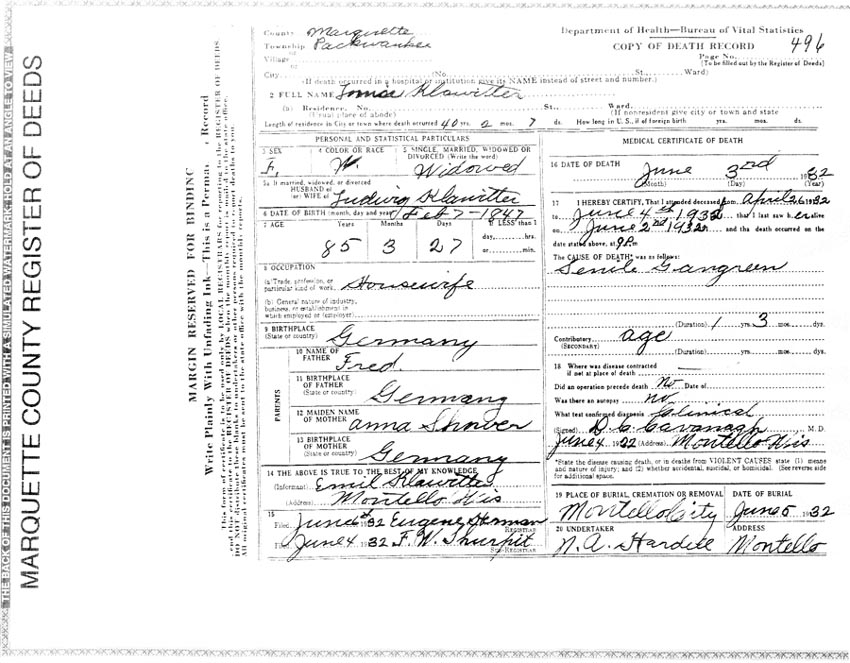 THE BACK OF THIS DOCUMENT IS PRINTED WITH A SIMULATED WATERMARK; HOLD AT AN ANGLE TO VIEW
MARQUETTE COUNTY REGISTER OF DEEDS
MARGIN RESERVED FOR BINDING
Write Plainly With Unfading Ink—This is a Perma Record
County Marquette
Township Packwaukee
or
Village
or
City (No. St., Ward)
Department of Health—Bureau of Vital Statistics
COPY OF DEATH RECORD 496
Page No.
(To be filled out by the Register of Deeds)
(If death occurred in a hospital or institution give its NAME instead of street and number.)
2 FULL NAME Klawitter
(a) Residence. No. St., Ward.
(Usual place of abode) (If nonresident give city or town and state
Length of residence in City or town where death occurred 40 yrs. 2 mos. 7 ds. How long in U. S., if of foreign birth yrs. mos. ds.
PERSONAL AND STATISTICAL PARTICULARS
3 SEX F.
4 COLOR OR RACE W.
5 SINGLE, MARRIED, WIDOWED OR DIVORCED (Write the word) Widowed
5a If married, widowed, or divorced
HUSBAND of
(or) WIFE of Ludwig Klawitter
6 DATE OF BIRTH (month, day and year) Feb 7-1847
7 AGE Years Months Days If LESS than 1
85 3 27 day, hrs.
or min.
8 OCCUPATION
(a) Trade, profession, or
particular kind of work. Housewife
(b) General nature of industry,
business, or establishment in
which employed or (employer)
9 BIRTHPLACE
(State or country) Germany
PARENTS
10 NAME OF
FATHER Fred.
11 BIRTHPLACE
OF FATHER
(State or country) Germany
12 MAIDEN NAME
OF MOTHER Anna
13 BIRTHPLACE
OF MOTHER
(State or country) Germany
14 THE ABOVE IS TRUE TO THE BEST OF MY KNOWLEDGE
(Informant) Emil Klawitter
(Address) Montello Wis
15
Filed June 1932 Eugene
REGISTRAR
Filed June 4 1932 F. W.
SUB-REGISTRAR
MEDICAL CERTIFICATE OF DEATH
16 DATE OF DEATH June 3rd 1932
(Month) (Day) (Year)
17 I HEREBY CERTIFY, That I attended deceased from April 26 1932
to June 4 1932 that I last saw her alive
on June 2nd 1932 and tha death occurred on the
date stated above, at 9 P.m
The CAUSE OF DEATH* was as follows:
Senile Gangreen
(Duration) 1 yrs. 3 mos. dys.
Contributory age
(SECONDARY)
(Duration) yrs. mos. dys.
18 Where was disease contracted
if not at place of death
Did an operation precede death No Date of
Was there an autopsy no
What test confirmed diagnosis Clinical
(Signed) D. C. Cavanagh, M. D.
June 4 1932 (Address) Montello Wis
*State the disease causing death, or in deaths from VIOLENT CAUSES state (1) means
and nature of injury; and (2) whether accidental, suicidal, or homicidal. (See reverse side
for additional space.
19 PLACE OF BURIAL, CREMATION OR REMOVAL DATE OF BURIAL
Montello City June 5 1932
20 UNDERTAKER ADDRESS
N. A. Montello